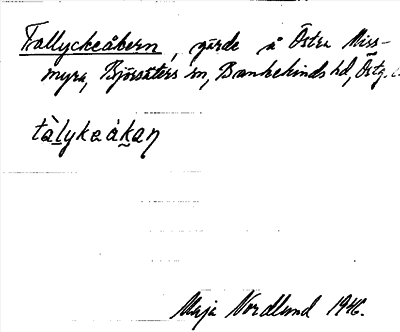 Tallyckeåkern, gärde å Östra Miss-
myra, Björsäters sn, Bankekinds hd, Östg.
tàlykəåkaņ
Maja Nordlund 1946.